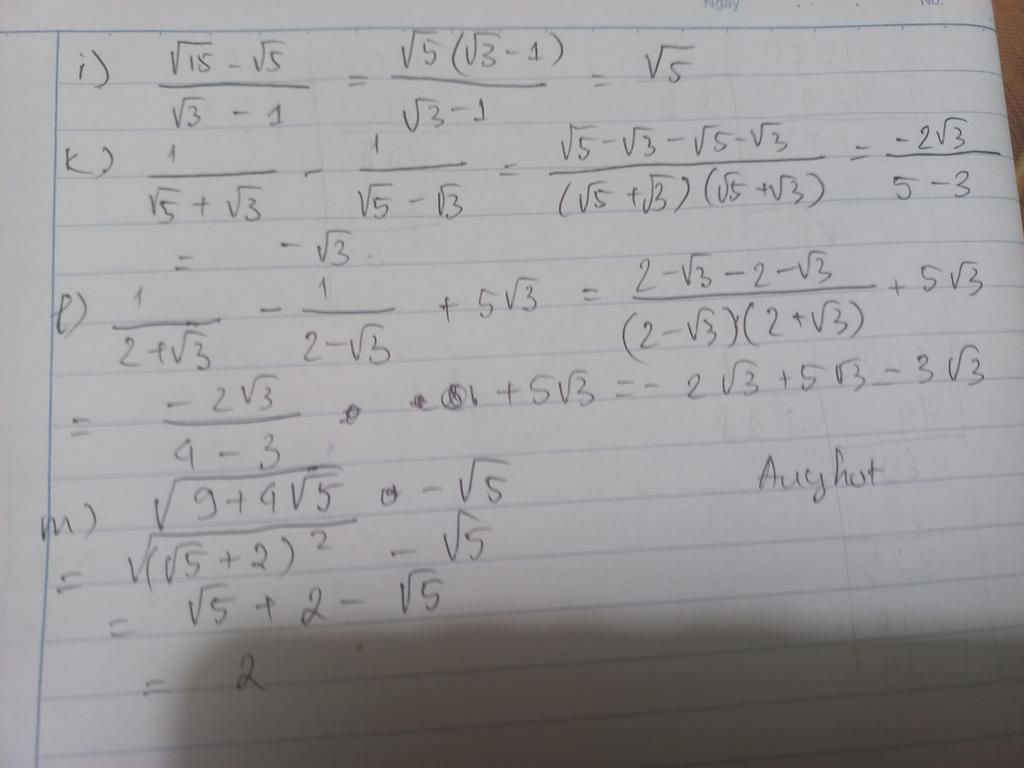 Ngày No.
i) (√15 - √5)/(√3 - 1) = (√5(√3 - 1))/(√3 - 1) = √5
k) 1/(√5 + √3) - 1/(√5 - √3) = (√5 - √3 - √5 - √3)/((√5 + √3)(√5 + √3)) = (-2√3)/(5 - 3)
= -√3
l) 1/(2 + √3) - 1/(2 - √3) + 5√3 = (2 - √3 - 2 - √3)/((2 - √3)(2 + √3)) + 5√3
= (-2√3)/(4 - 3) + 5√3 = -2√3 + 5√3 = 3√3
m) √(9 + 4√5) - √5
= √((√5 + 2)²) - √5
= √5 + 2 - √5
= 2